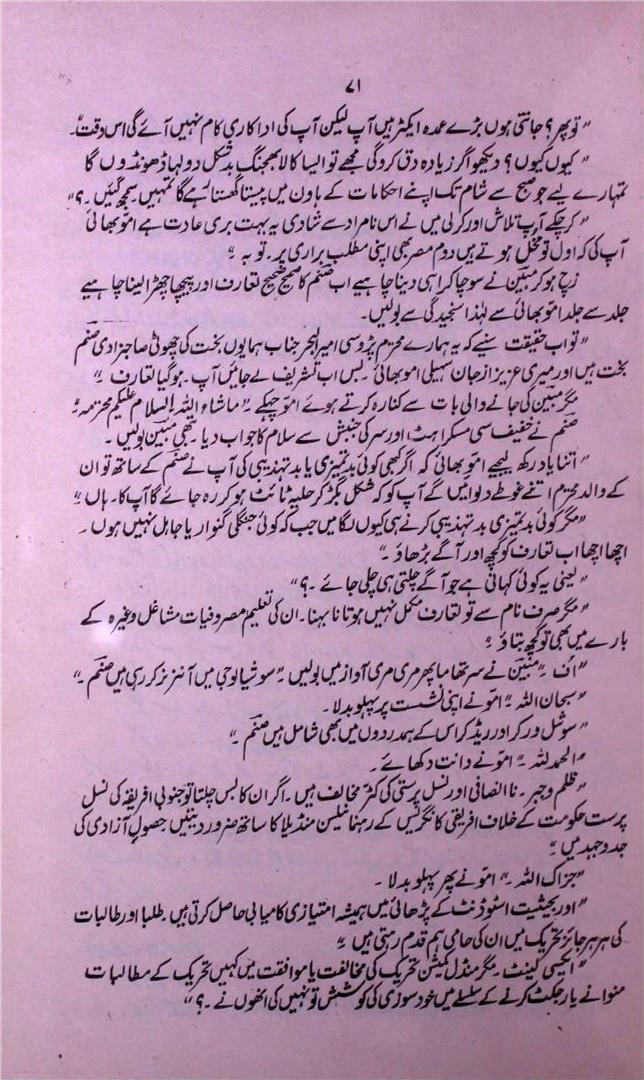 ۷۱
”تو پھر؟ جانتی ہوں بڑے عمدہ ایکٹر ہیں آپ لیکن آپ کی اداکاری کام نہیں آئے گی اس وقت“۔
”کیوں کیوں؟ دیکھو اگر زیادہ دق کرو گی مجھے تو ایسا کالا بھجنگ بدشکل دولہا ڈھونڈوں گا
تمہارے لیے جو صبح سے شام تک اپنے احکامات کے ہاون میں پیستا گھستا رہے گا تمہیں سمجھ گئیں۔؟“
”کر چکے آپ تلاش اور کر لی میں نے اس نامراد سے شادی یہ بہت بری عادت ہے امّو بھائی
آپ کی کہ اول تو مخل ہوتے ہیں دوم مصر بھی اپنی مطلب براری پر۔ توبہ۔“
زچ ہو کر مبین نے سوچا کرا ہی دینا چاہیے اب صنم کا صحیح صحیح تعارف اور پیچھا چھڑا لینا چاہیے
جلد سے جلد امّو بھائی سے لہٰذا سنجیدگی سے بولیں۔
”تو اب حقیقت سنیے کہ یہ ہمارے محترم پڑوسی امیر البحر جناب ہمایوں بخت کی چھوٹی صاحبزادی صنم
بخت ہیں اور میری عزیز از جان سہیلی امّو بھائی۔ بس اب تشریف لے جائیں آپ۔ ہو گیا تعارف۔“
مگر مبین کی جانے والی بات سے کنارہ کرتے ہوئے امّو چہکے۔ ”ماشاء اللہ! السلام علیکم محترمہ“۔
صنم نے خفیف سی مسکراہٹ اور سر کی جنبش سے سلام کا جواب دیا۔ تبھی مبین بولیں۔
”اتنا یاد رکھ لیجیے امّو بھائی کہ اگر کبھی کوئی بدتمیزی یا بدتہذیبی کی آپ نے صنم کے ساتھ تو ان
کے والد محترم اتنے غوطے دلوائیں گے آپ کو کہ شکل بگڑ کر حلیہ ٹائٹ ہو کر رہ جائے گا آپ کا۔ ہاں۔“
”مگر کوئی بدتمیزی بدتہذیبی کرنے ہی کیوں لگا میں جب کہ کوئی جنگلی گنوار یا جاہل نہیں ہوں۔
اچھا اچھا اب تعارف کو کچھ اور آگے بڑھاؤ۔“
”یعنی یہ کوئی کہانی ہے جو آگے چلتی ہی چلی جائے۔؟“
”مگر صرف نام سے تو تعارف مکمل نہیں ہوتا نا بہنا۔ ان کی تعلیم مصروفیات مشاغل وغیرہ کے
بارے میں بھی تو کچھ بتاؤ۔“
”اُف۔“ مبین نے سر تھاما پھر مری مری آواز میں بولیں۔ ”سوشیالوجی میں آنرز کر رہی ہیں صنم۔“
”سبحان اللہ۔“ امّو نے اپنی نشست پر پہلو بدلا۔
”سوشل ورکر اور ریڈ کراس کے ہمدردوں میں بھی شامل ہیں صنم۔“
”الحمد للہ۔“ امّو نے دانت دکھائے۔
”ظلم و جبر۔ ناانصافی اور نسل پرستی کی کٹر مخالف ہیں۔ اگر ان کا بس چلتا تو جنوبی افریقہ کی نسل
پرست حکومت کے خلاف افریقی کانگریس کے رہنما نیلسن منڈیلا کا ساتھ ضرور دیتیں حصولِ آزادی کی
جدوجہد میں۔“
”جزاک اللہ۔“ امّو نے پھر پہلو بدلا۔
”اور بحیثیت اسٹوڈنٹ کے پڑھائی میں ہمیشہ امتیازی کامیابی حاصل کرتی ہیں۔ طلبا اور طالبات
کی ہر ہر جائز تحریک میں ان کی حامی ہم قدم رہتی ہیں۔“
”ایکسی لینٹ۔ مگر منڈل کمیشن تحریک کی مخالفت یا موافقت میں کہیں تحریک کے مطالبات
منوانے یا رجکٹ کرنے کے سلسلے میں خود سوزی کی کوشش تو نہیں کی انھوں نے۔؟“